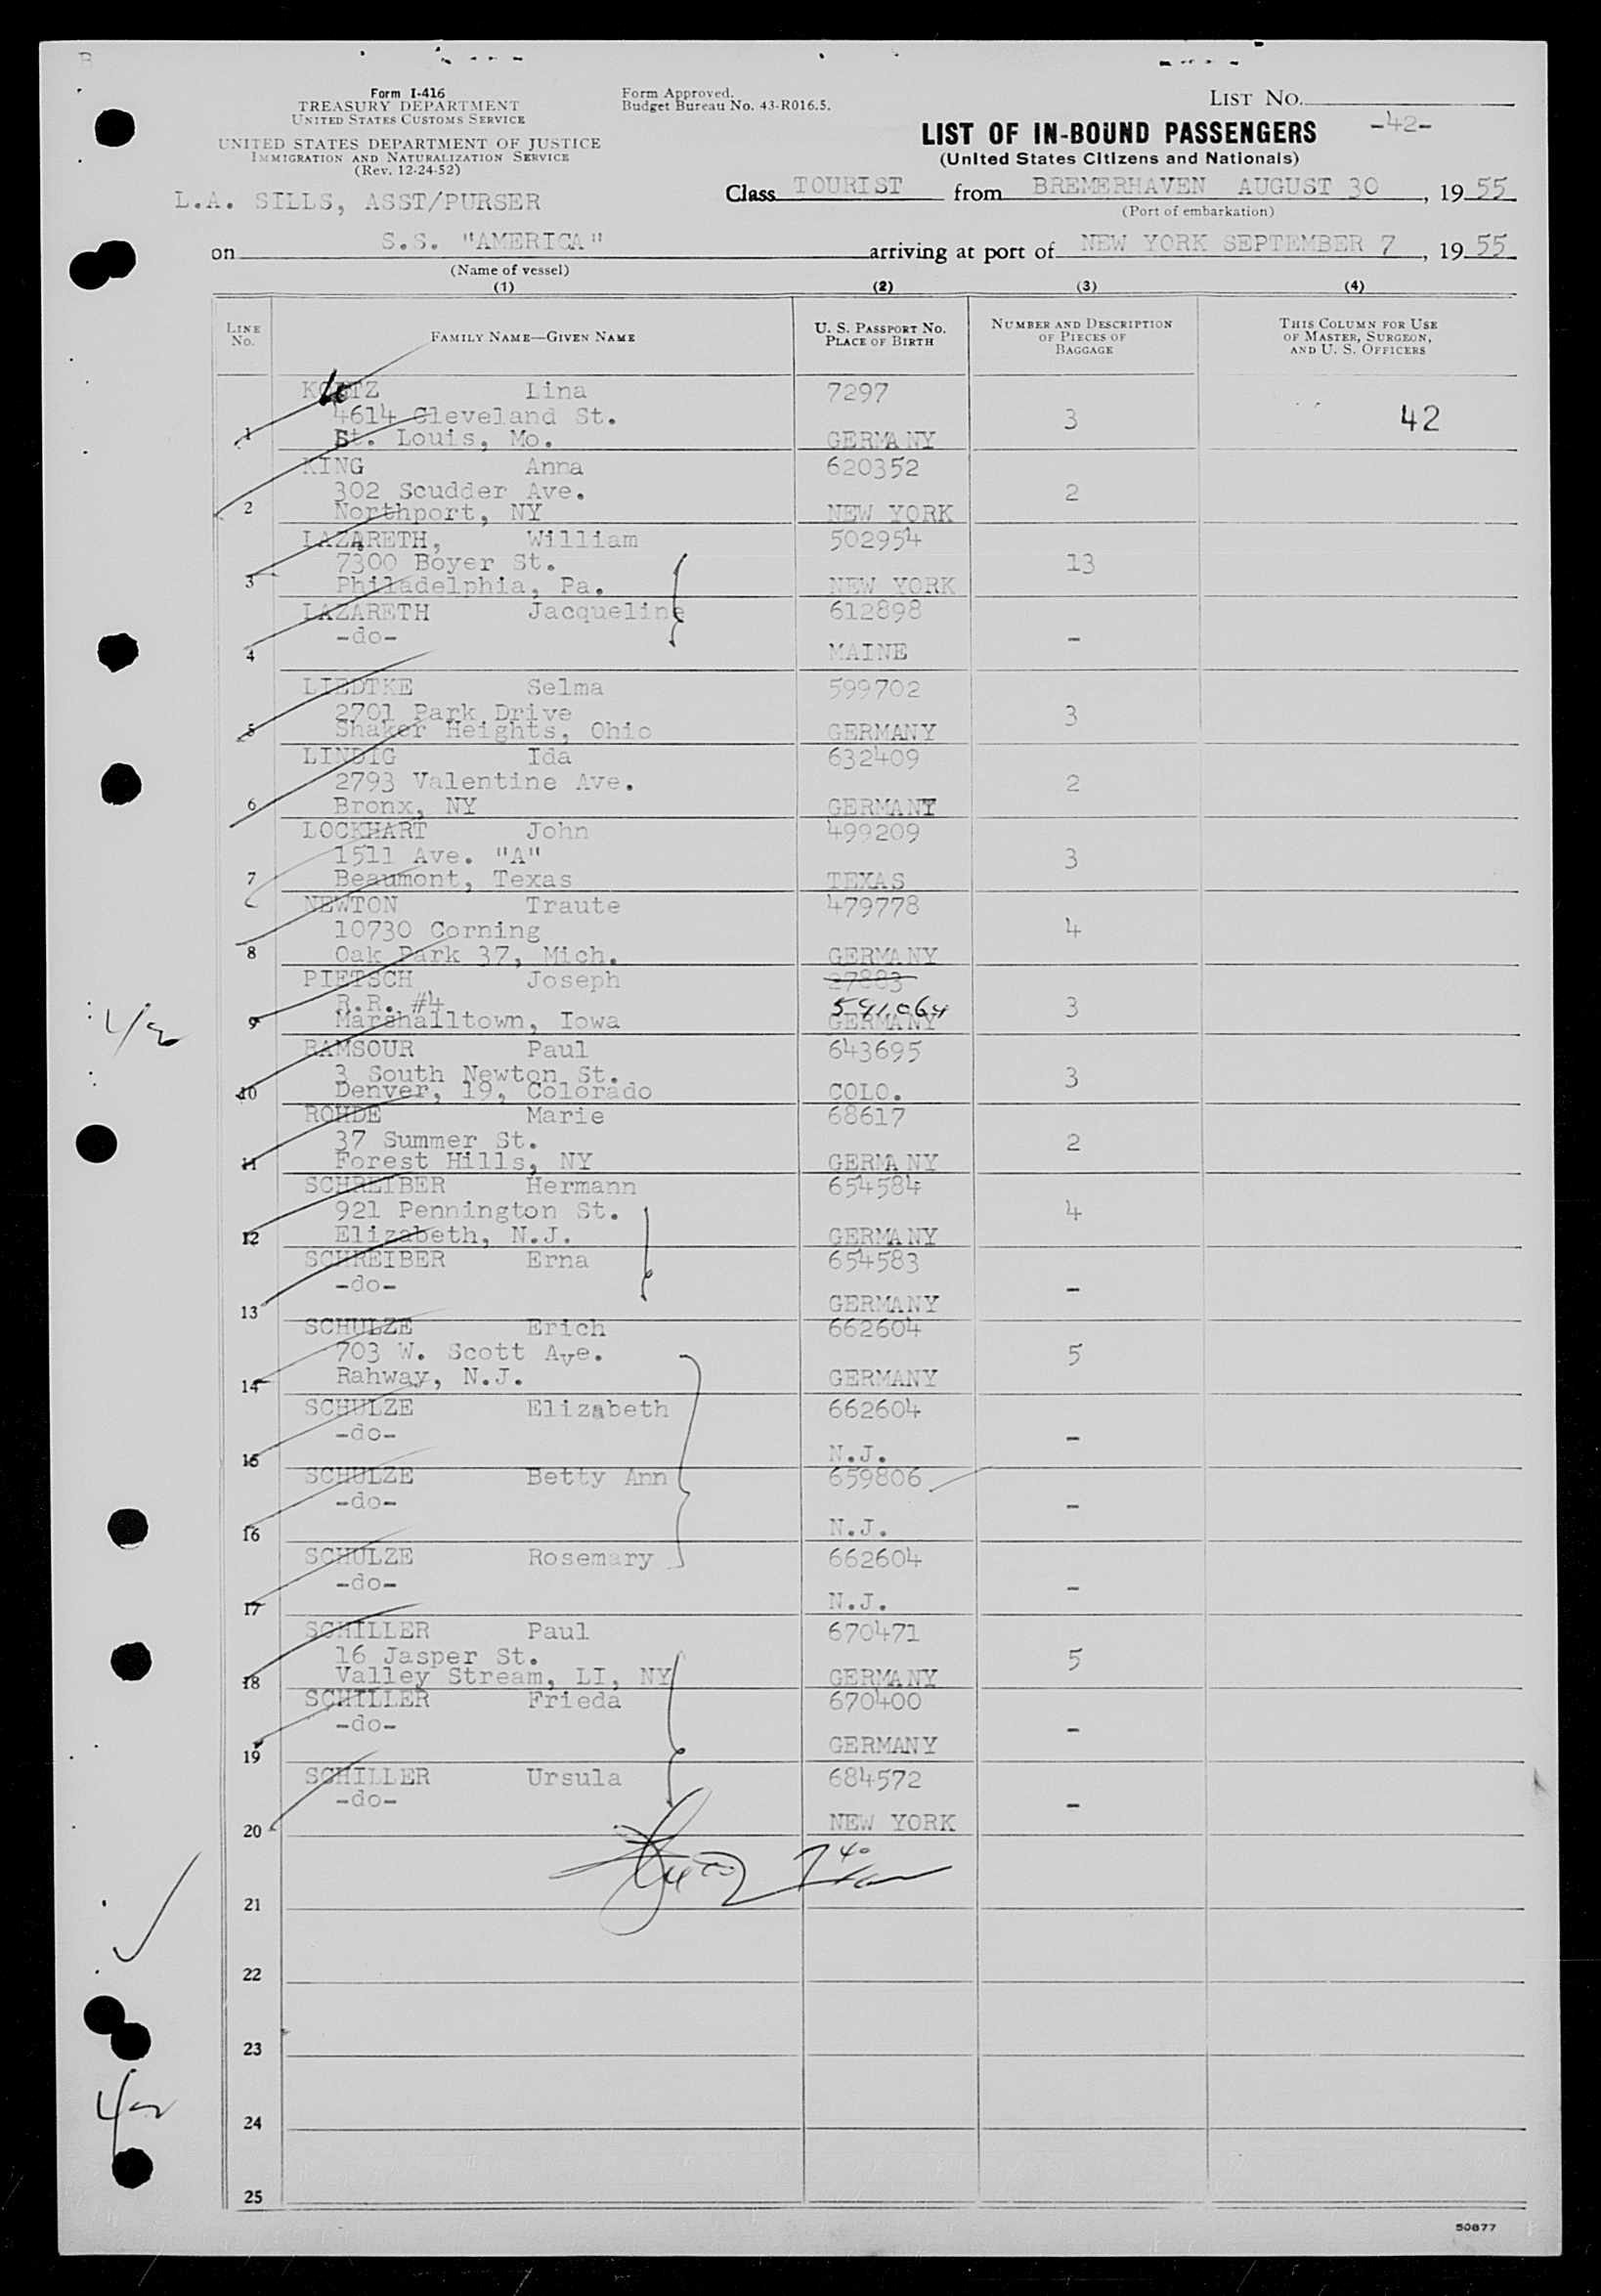 B
Form I-416
TREASURY DEPARTMENT
UNITED STATES CUSTOMS SERVICE
UNITED STATES DEPARTMENT OF JUSTICE
IMMIGRATION AND NATURALIZATION SERVICE
(Rev. 12-24-52)
Form Approved.
Budget Bureau No. 43-R016.5.
LIST NO.
-42-
LIST OF IN-BOUND PASSENGERS
(United States Citizens and Nationals)
L.A. SILLS, ASST/PURSER
Class TOURIST from BREMERHAVEN AUGUST 30, 1955
(Port of embarkation)
on S.S. "AMERICA" arriving at port of NEW YORK SEPTEMBER 7, 1955
(Name of vessel)
(1) (2) (3) (4)
LINE NO. FAMILY NAME—GIVEN NAME U. S. PASSPORT NO. PLACE OF BIRTH NUMBER AND DESCRIPTION OF PIECES OF BAGGAGE THIS COLUMN FOR USE OF MASTER, SURGEON, AND U. S. OFFICERS
Lina 7297
4614 Cleveland St. 3 42
1 St. Louis, Mo. GERMANY
KING Anna 620352
302 Scudder Ave. 2
2 Northport, NY NEW YORK
LAZARETH, William 502954
7300 Boyer St. 13
3 Philadelphia, Pa. NEW YORK
LAZARETH Jacqueline 612898
-do- -
4 MAINE
LIEDTKE Selma 599702
2701 Park Drive 3
5 Shaker Heights, Ohio GERMANY
LINDIG Ida 632409
2793 Valentine Ave. 2
6 Bronx, NY GERMANY
LOCKHART John 499209
1511 Ave. "A" 3
7 Beaumont, Texas TEXAS
NEWTON Traute 479778
10730 Corning 4
8 Oak Park 37, Mich. GERMANY
PIETSCH Joseph 27883
R.R. #4 591064 3
9 Marshalltown, Iowa GERMANY
RAMSOUR Paul 643695
3 South Newton St. 3
10 Denver, 19, Colorado COLO.
ROHDE Marie 68617
37 Summer St. 2
11 Forest Hills, NY GERMANY
SCHREIBER Hermann 654584
921 Pennington St. 4
12 Elizabeth, N.J. GERMANY
SCHREIBER Erna 654583
-do- -
13 GERMANY
SCHULZE Erich 662604
703 W. Scott Ave. 5
14 Rahway, N.J. GERMANY
SCHULZE Elizabeth 662604
-do- -
15 N.J.
SCHULZE Betty Ann 659806
-do- -
16 N.J.
SCHULZE Rosemary 662604
-do- -
17 N.J.
SCHILLER Paul 670471
16 Jasper St. 5
18 Valley Stream, LI, NY GERMANY
SCHILLER Frieda 670400
-do- -
19 GERMANY
SCHILLER Ursula 684572
-do- -
20 NEW YORK
21
22
23
24
25
50877